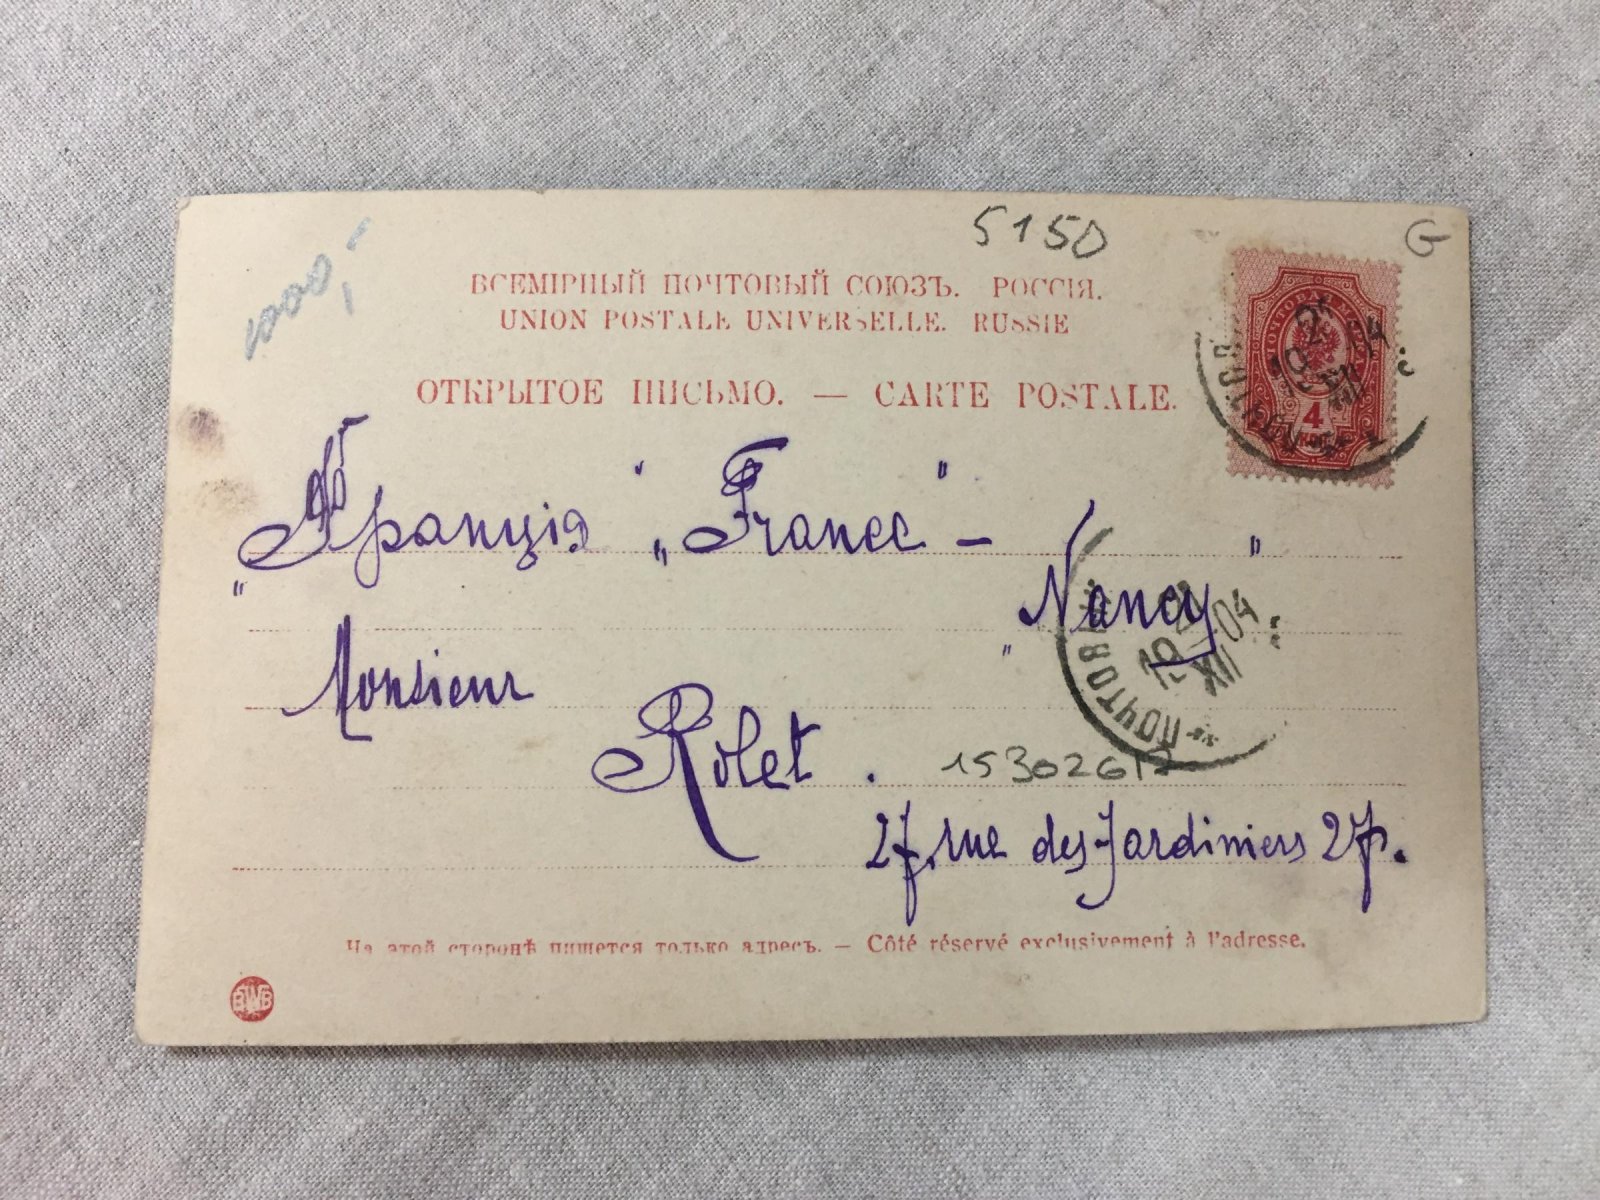 5150
G
1000,-
ВСЕМІРНЫЙ ПОЧТОВЫЙ СОЮЗЪ. РОССІЯ.
UNION POSTALE UNIVERSELLE. RUSSIE
ОТКРЫТОЕ ПИСЬМО. — CARTE POSTALE.
4
"Франція" „France" –
"Nancy"
10 XII 04
ПОЧТОВЫЙ
Monsieur
Rolet.
15302612
27, rue des Jardiniers 27.
На этой сторонѣ пишется только адресъ. — Côté réservé exclusivement à l'adresse.